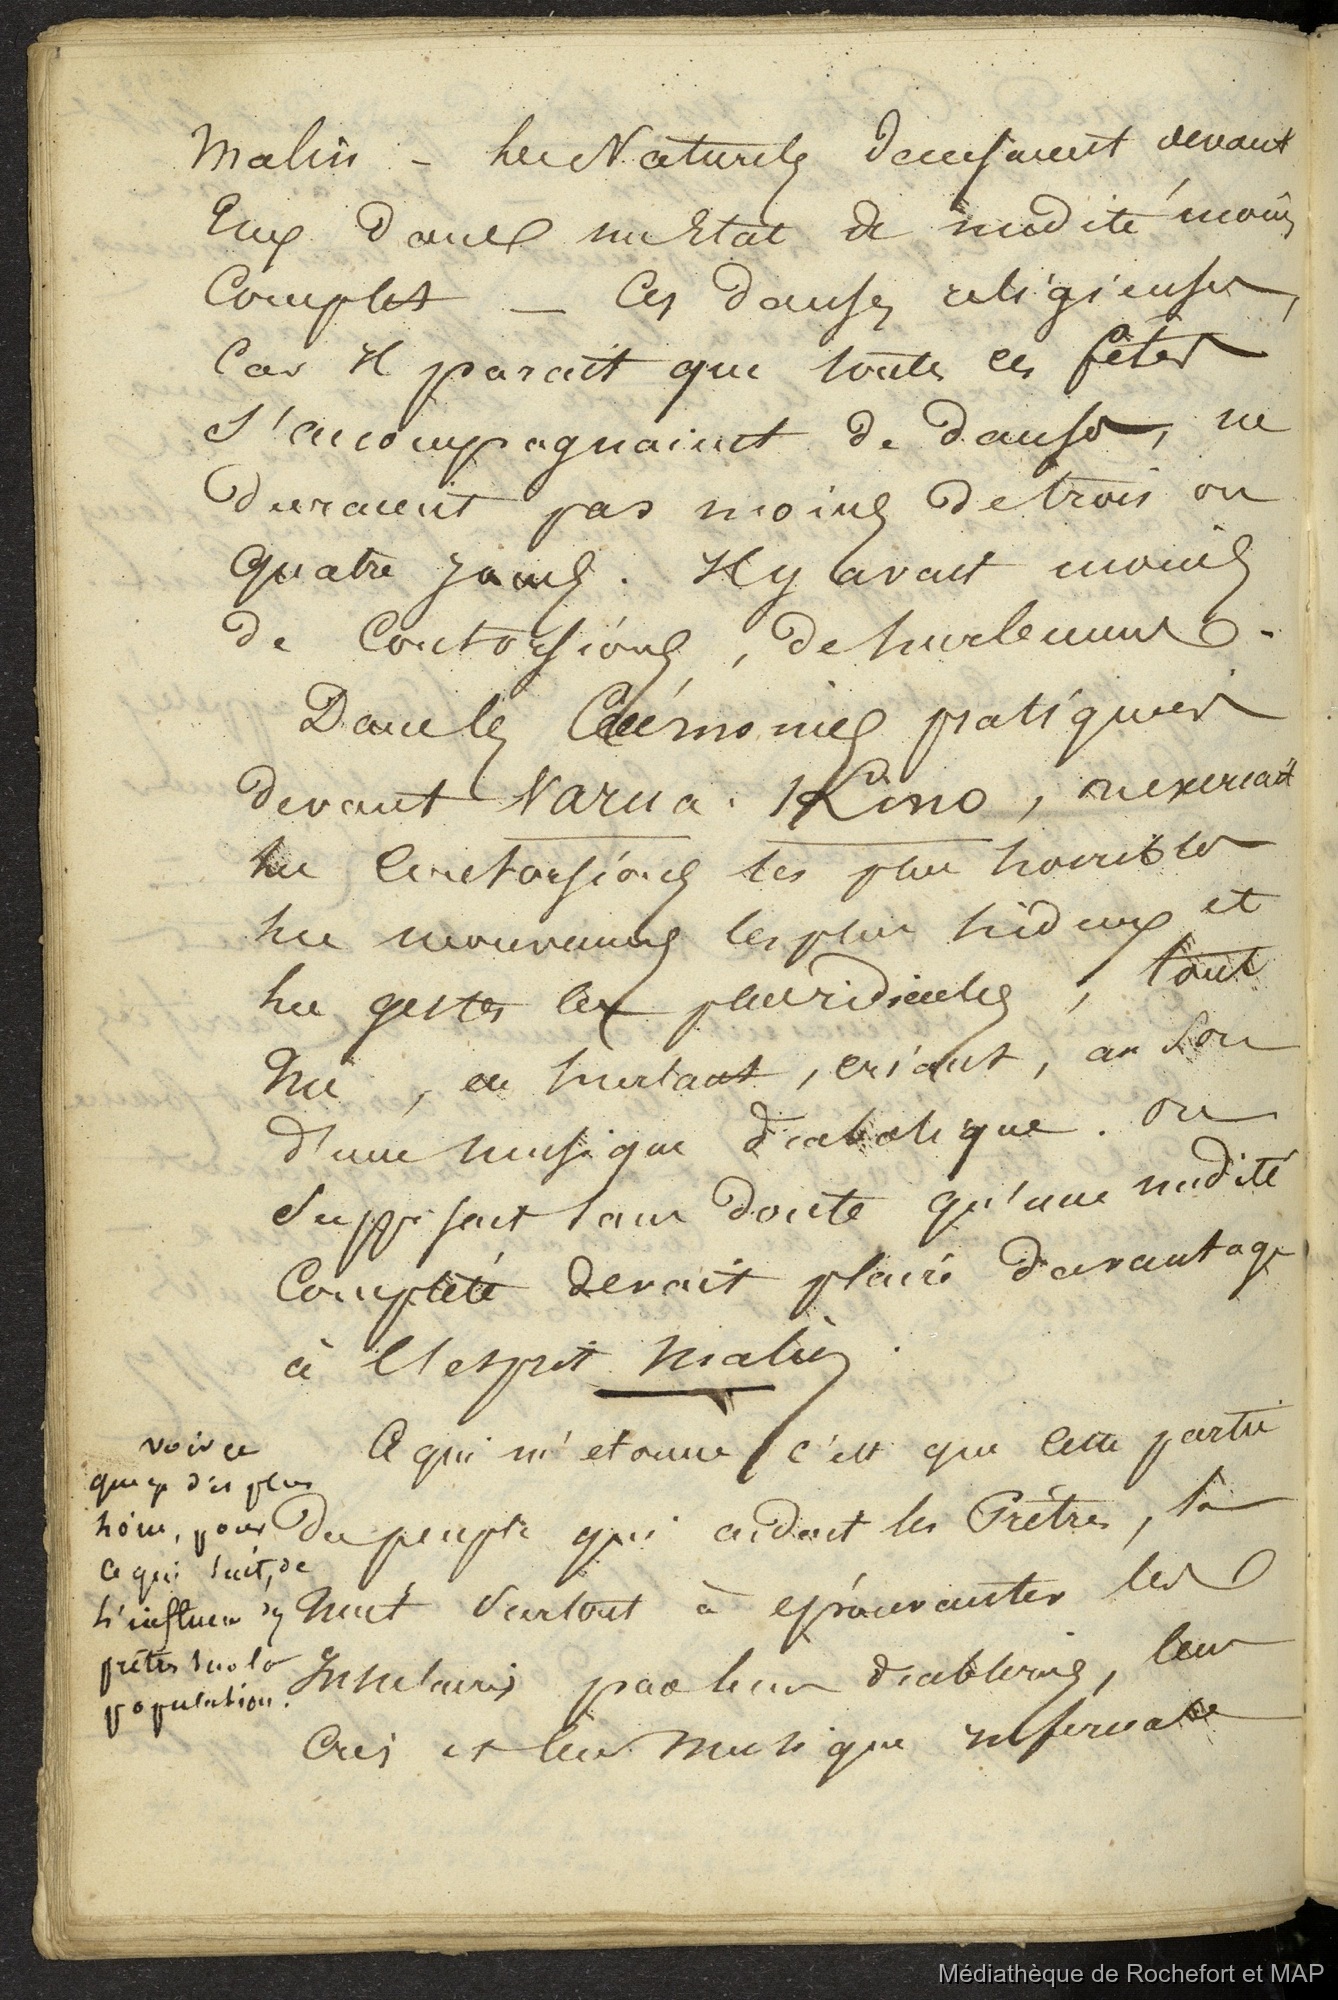 Malin — les Naturels dansaient devant
Eux dans un Etat de nudité moins
Complet — Ces danses religieuses,
Car Il parait que toutes ces fêtes
s'accompagnaient de danses, ne
duraient pas moins de trois ou
quatre jours. Il y avait moins
de Contorsions, de hurlemens.
Dans les Cérémonies pratiquées
devant Varua. Kino, on exercait
les Contorsions les plus horribles
les mouvemens les plus hideux et
les gestes les plus ridicules, tout
Nu, en hurlant, criant, au son
d'une musique diabolique. On
supposait sans doute qu'une nudité
Complète devait plaire davantage
à l'esprit Malin.
Ce qui m'etonne c'est que cette partie
du peuple qui aidait les Prêtres, la
Nuit surtout à épouvanter les
Insulaires par leurs diableries, leurs
Cris et leur Musique infernale
voir ce
que je dis plus
loin, pour
ce qui suit, de
l'influence des
prêtres sur la
population.
Médiathèque de Rochefort et MAP